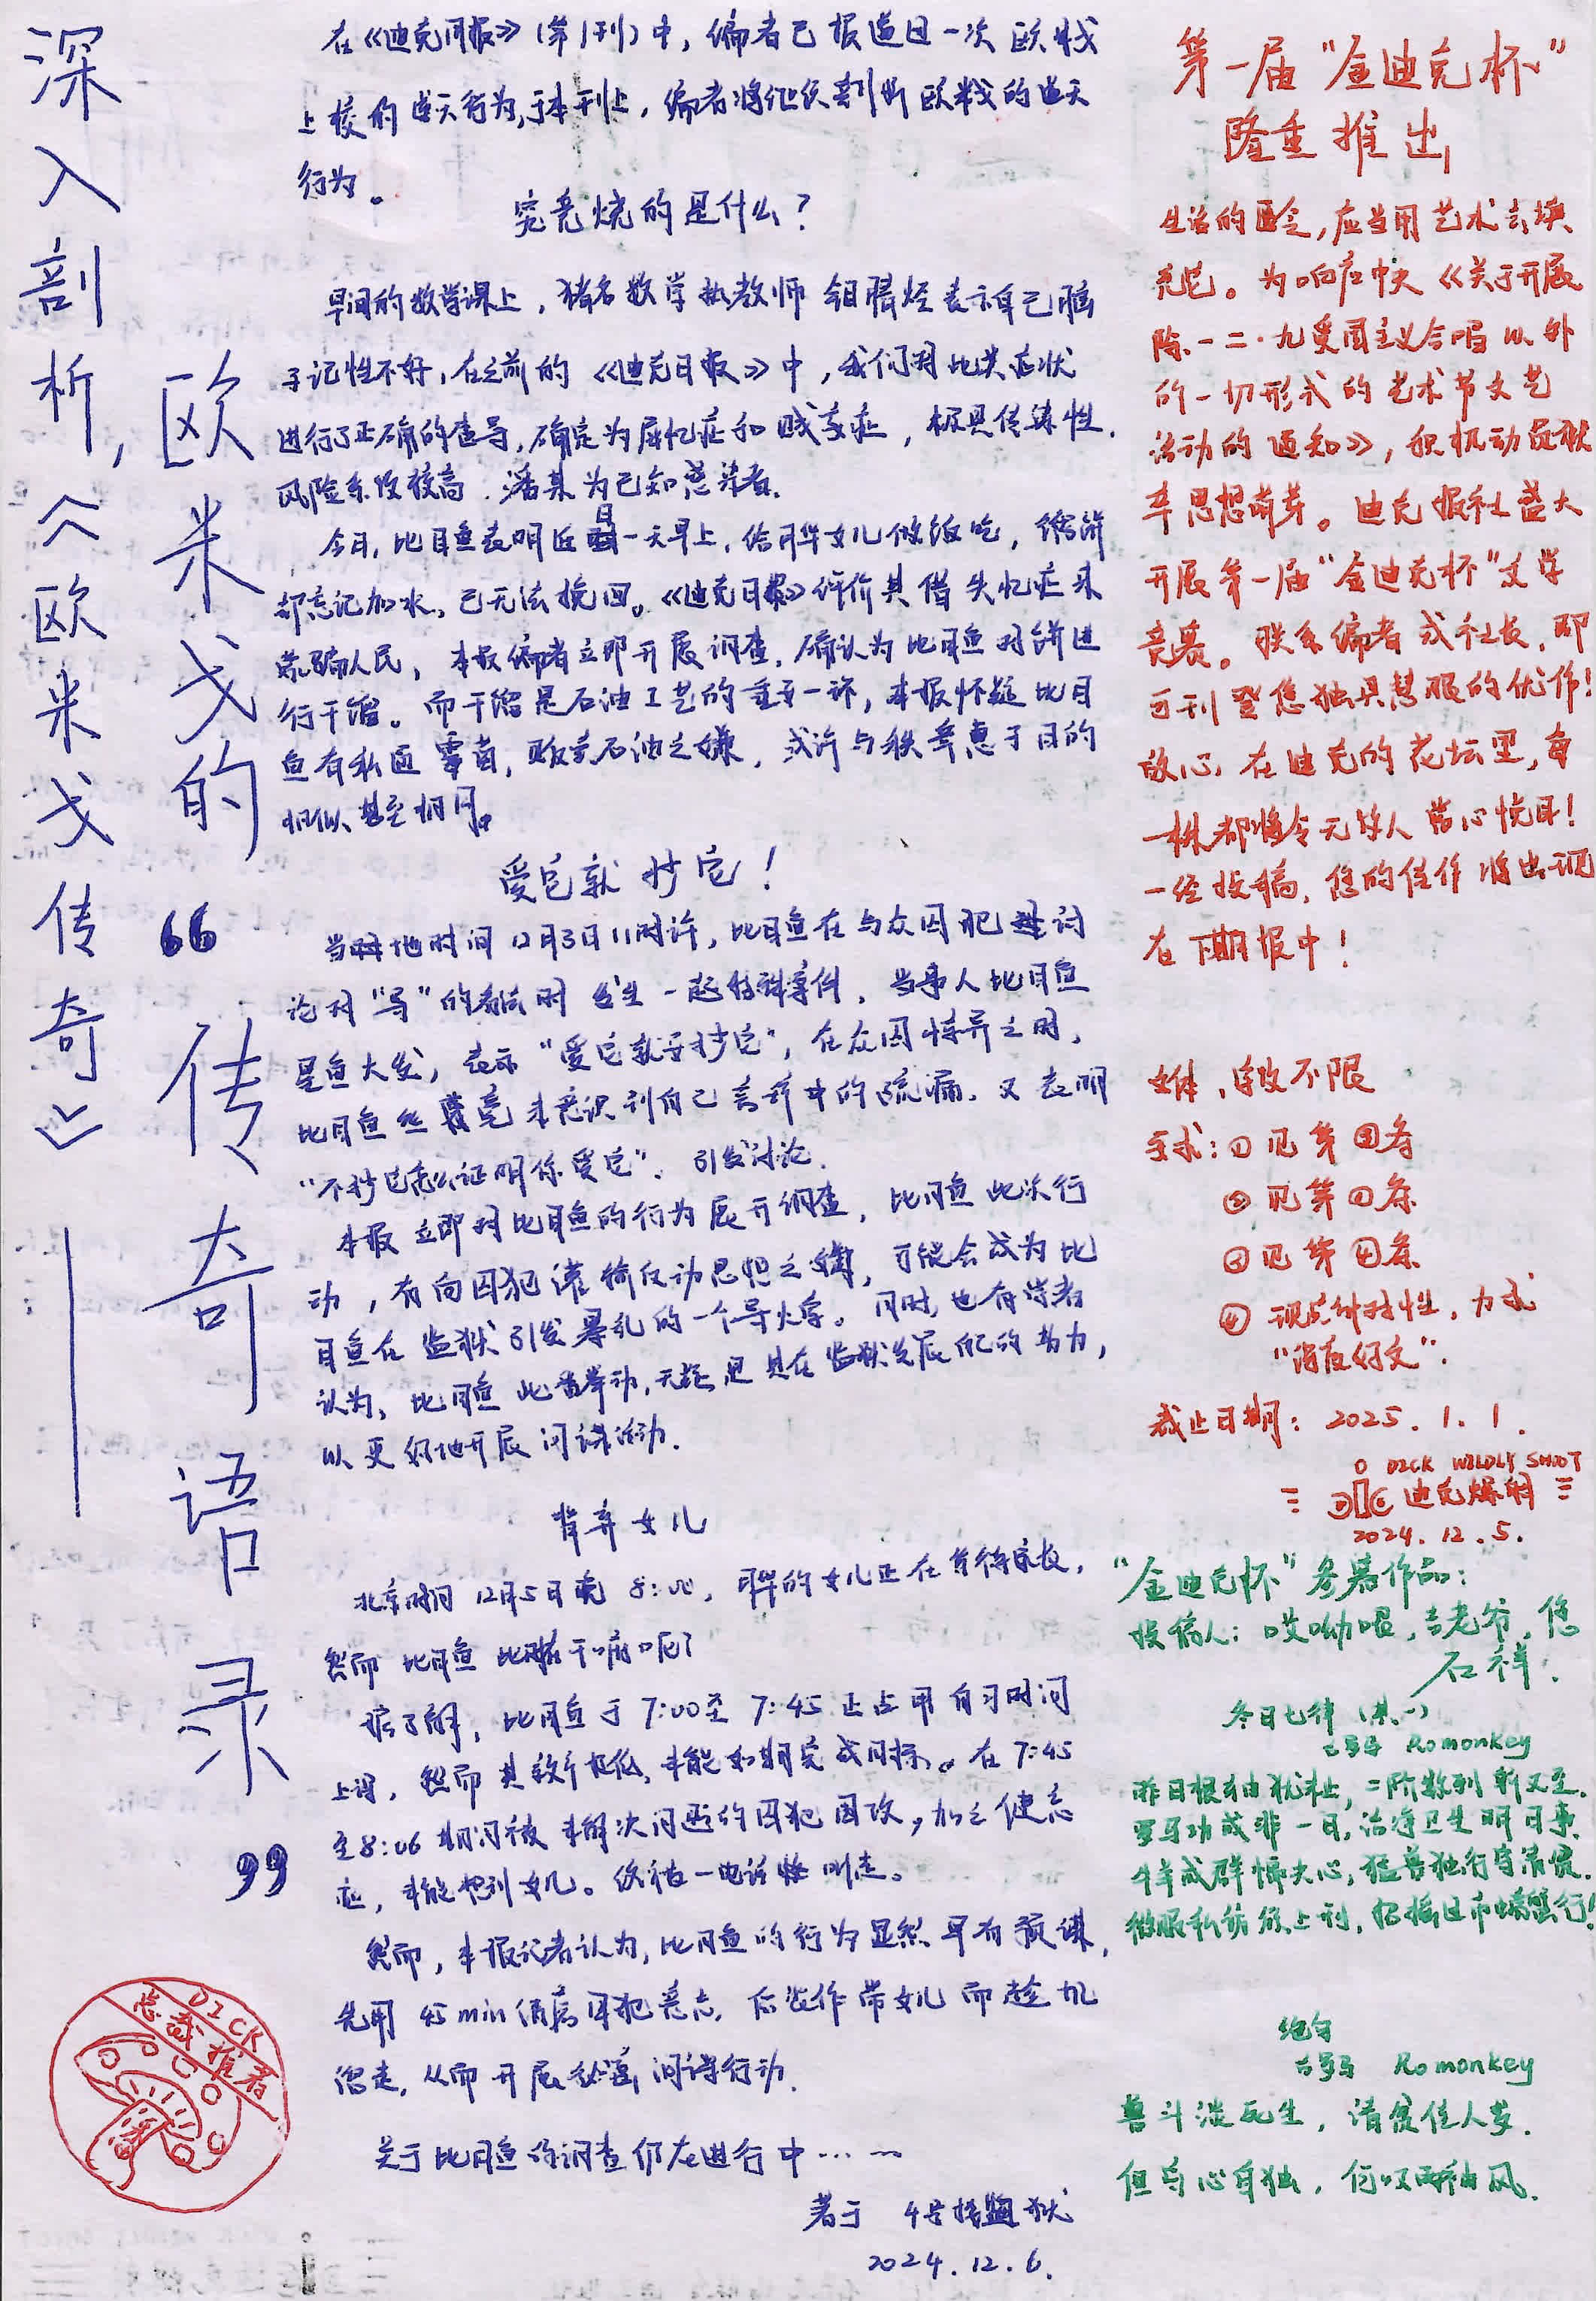 深入剖析，《欧米戈传奇》——
欧米戈的“传奇语录”
在《迪克日报》（第1刊）中，编者已报道过一次欧米戈
上校的逆天行为，于本刊上，编者将继续剖析欧米戈的逆天
行为。
究竟烧的是什么？
早间的数学课上，猪名数学执教师 表示自己脑
子记性不好，在之前的《迪克日报》中，我们对此类症状
进行了正确的查导，确定为失忆症和 症，极具传染性，
风险系数较高，潘某为已知感染者。
今日，比目鱼表明近日一天早上，给 女儿做饭吃，馏饼
都忘记加水，已无法挽回。《迪克日报》评价其借失忆症来
欺骗人民，本报编者立即开展调查，确认为比目鱼对饼进
行干馏。而干馏是石油工艺的重要一环，本报怀疑比目
鱼有私匿 ，贩卖石油之嫌，或许与秩 惠子目的
相似、甚至相同。
爱它就抄它！
当地时间12月3日11时许，比目鱼在与众囚犯 讨
论对“写”的看法时发生一起特殊事件，当事人比目鱼
兽鱼大发，表示“爱它就要抄它”，在众囚惊异之时，
比目鱼 竟未意识到自己言辞中的疏漏，又表明
“不抄它怎么证明你爱它”，引发讨论。
本报立即对比目鱼的行为展开调查，比目鱼此次行
动，有向囚犯灌输反动思想之嫌，可能会成为比
目鱼在监狱引发暴乱的一个导火索。同时，也有学者
认为，比目鱼此番举动，无疑是其在监狱发展 的努力，
以更好地开展间谍活动。
背弃女儿
北京时间12月5日晚8:00， 的女儿正在等待家长，
然而比目鱼 干嘛呢？
据了解，比目鱼于7:00至7:45正占用自习时间
上课，然而其效率极低，未能如期完成目标。在7:45
至8:06期间被未解决问题的囚犯围攻，加之健忘
症，未能想到女儿。终被一电话 叫走。
然而，本报记者认为，比目鱼的行为显然早有预谋，
先用45min 囚犯意志，后装作带女儿而趁机
溜走，从而开展 间谍行动。
关于比目鱼的调查仍在进行中……
著于 4号楼监狱
2024.12.6.
DICK
总裁推荐
第一届“金迪克杯”
隆重推出
生活的匮乏，应当用艺术去填
充它。为响应中央《关于开展
除一二·九爱国主义合唱以外
的一切形式的艺术节文艺
活动的通知》，积极动员秋
季思想萌芽。迪克报社盛大
开展第一届“金迪克杯”文学
竞赛。联系编者或社长，即
可刊登您独具慧眼的优作！
放心，在迪克的花坛里，每
一株都将令无数人赏心悦目！
一经投稿，您的佳作将出现
在下期报中！
文体，字数不限
要求：①见第③条
②见第①条
③见第④条
④现点针对性，力求
“ 好文”。
截止日期：2025.1.1.
DICK WILDLY SHOOT
迪克爆射
2024.12.5.
“金迪克杯”参赛作品：
投稿人：哎呦喂，吉老爷，您
吉祥！
冬日七律（其一）
Romonkey
昨日根轴犹未止，二阶数列新又至。
罗马功成非一日，洁净卫生明日事。
牛羊成群怖夫心，猛兽独行守清贫。
微服私访 上刊，招摇过市螃蟹行！
绝句
Romonkey
兽斗淡死生，清贫佳人梦。
但与心身独，何 两袖风。